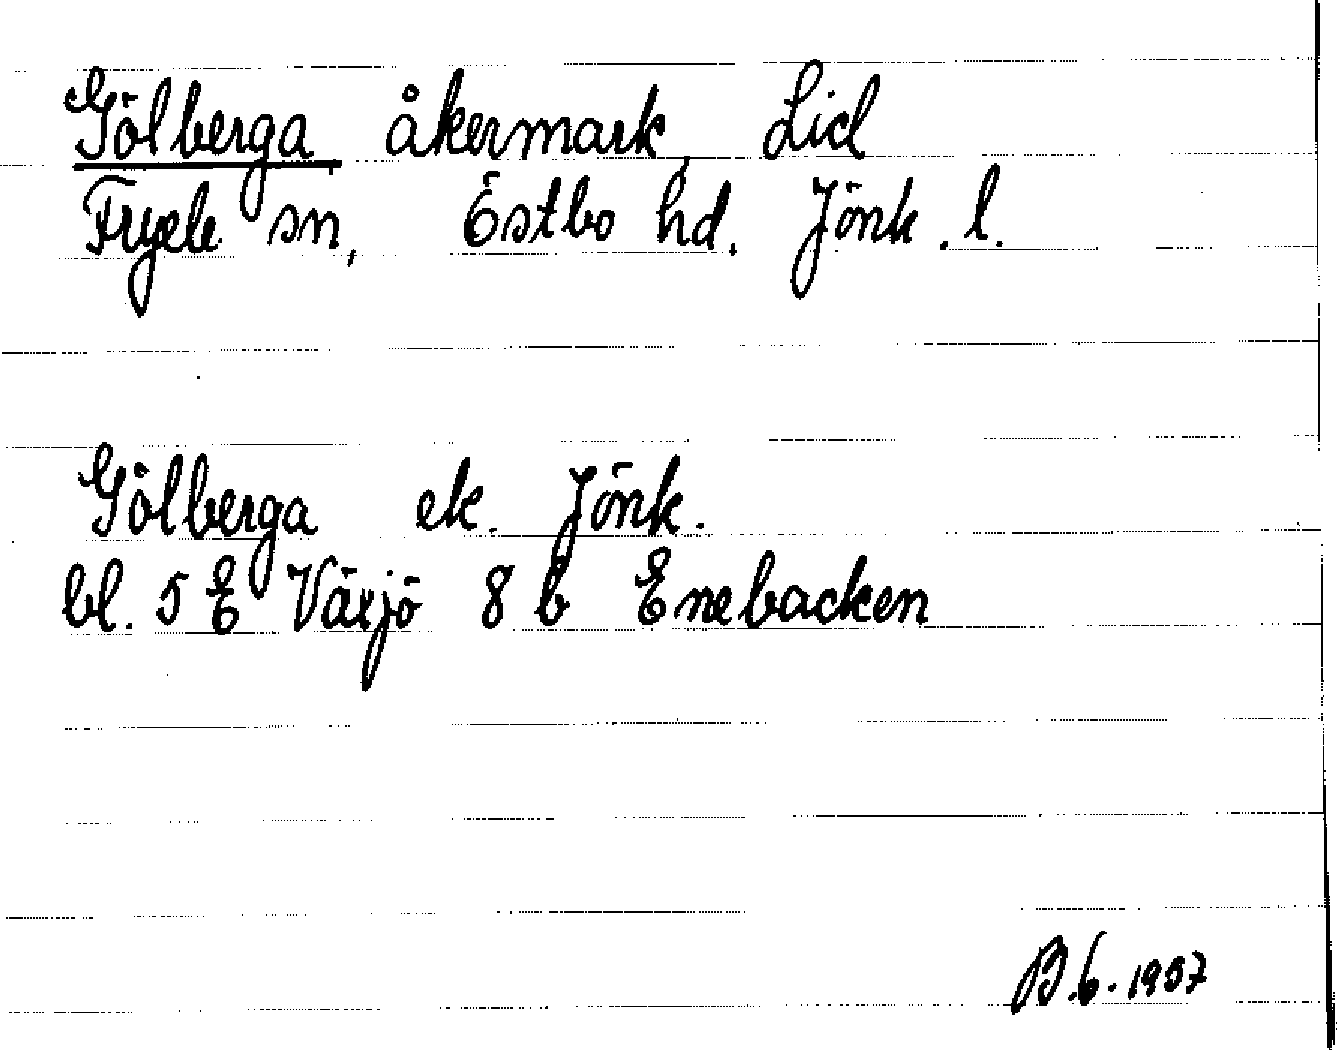 Gölberga åkermark, Lid
Fryele sn, Östbo hd. Jönk. l.
Gölberga ek. Jönk.
bl. 5 E Växjö 8 b Enebacken
B.G. 1957